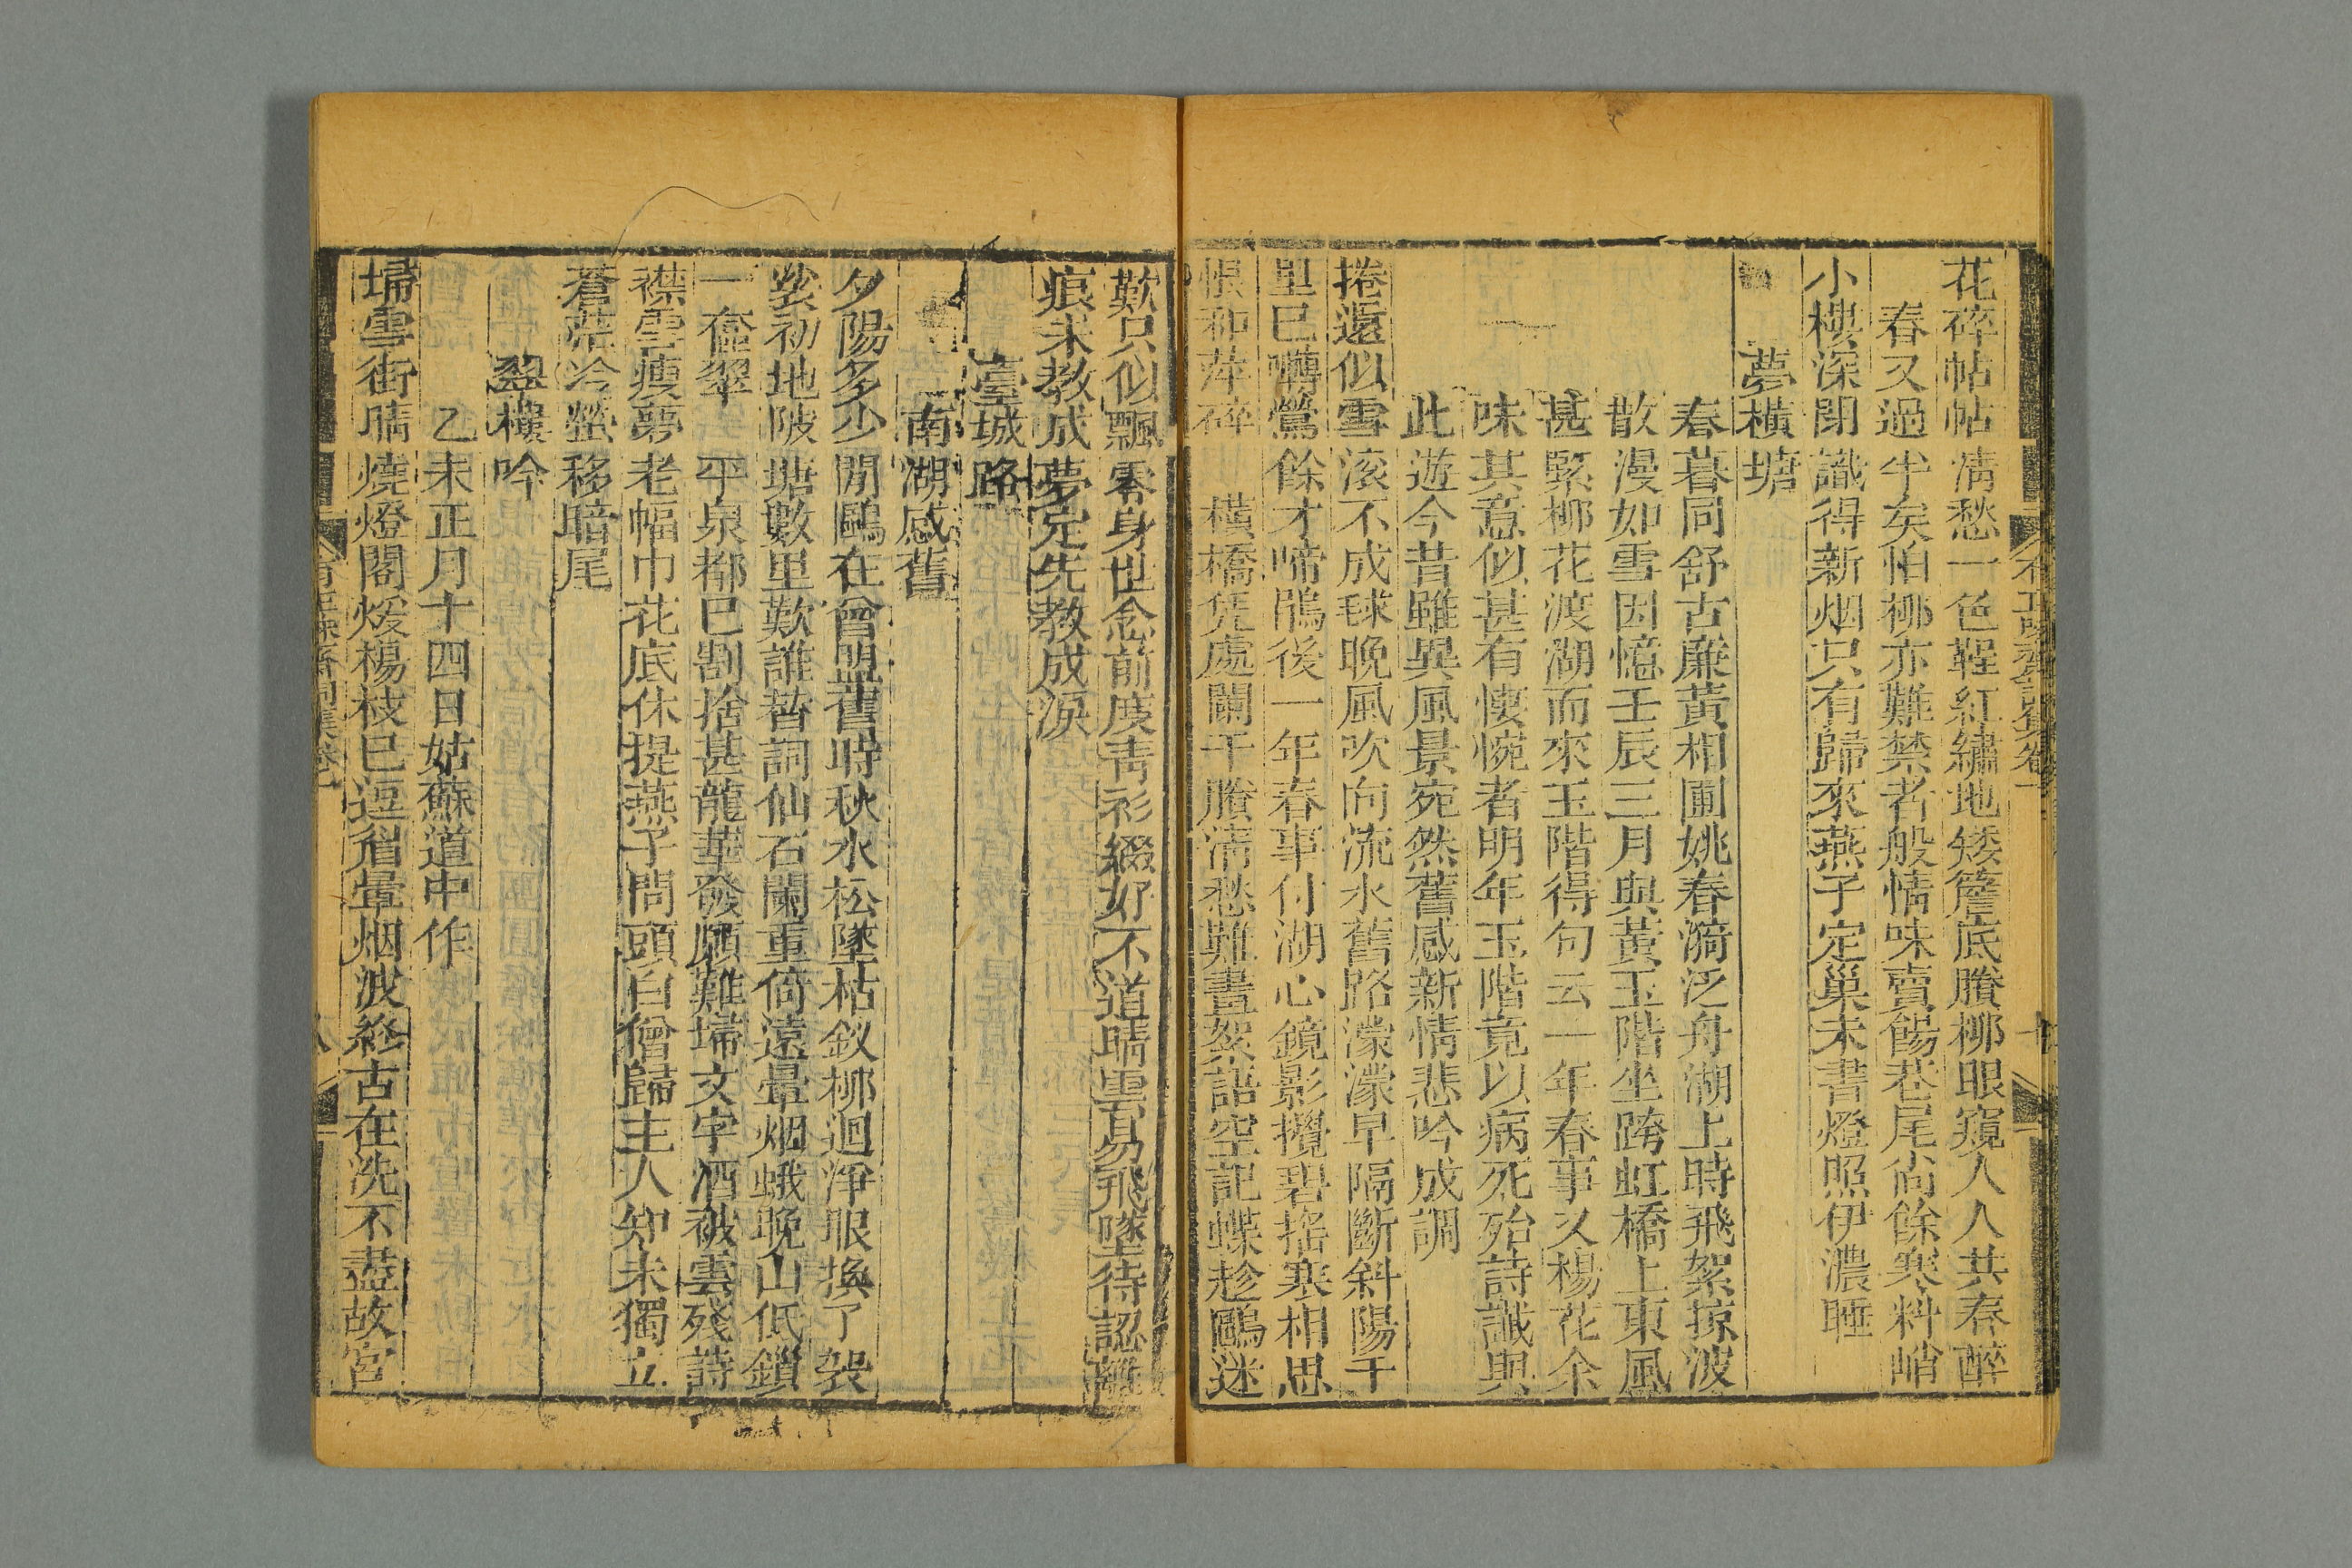 花碎帖帖清愁一色鞓紅繡地矮簷底賸柳眼窺人人共春醉
春又過半矣怕柳亦難禁者般情味賣餳巷尾尚餘寒料峭
小樓深閉識得新烟只有歸來燕子定巢未書燈照伊濃睡
夢橫塘
春暮同舒古廉黃相圃姚春漪泛舟湖上時飛絮掠波
散漫如雪因憶壬辰三月與黃玉階坐跨虹橋上東風
甚緊柳花渡湖而來玉階得句云一年春事又楊花余
味其意似甚有悽惋者明年玉階竟以病死殆詩讖與
此遊今昔雖異風景宛然舊感新情悲吟成調
捲還似雪滚不成毬晚風吹向流水舊路濛濛早隔斷斜陽千
里巳囀鶯餘才啼鵑後一年春事付湖心鏡影攪碧搖寒相思
恨和萍碎 橫橋凭處闌干賸清愁難畫絮語空記蝶趁鷗迷
歎只似飄零身世念前度青衫綴好不道晴雲易飛墜待認離
痕未教成夢先教成淚
臺城路
南湖感舊
夕陽多少閒鷗在曾盟舊時秋水松墜枯釵柳迴淨眼換了袈
裟初地陂塘數里歎誰替詞仙石闌重倚遠疊烟蛾晚山低鎖
一奩翠 平泉都巳割捨甚龍華發願難埽文字酒被雲殘詩
襟雪瘦夢老幅巾花底休提燕子問頭白僧歸主人知未獨立
蒼茫冷螢移暗尾
翠樓吟
乙未正月十四日姑蘇道中作
埽雪街晴燒燈閣煖楊枝巳逗眉暈烟波終古在洗不盡故宮